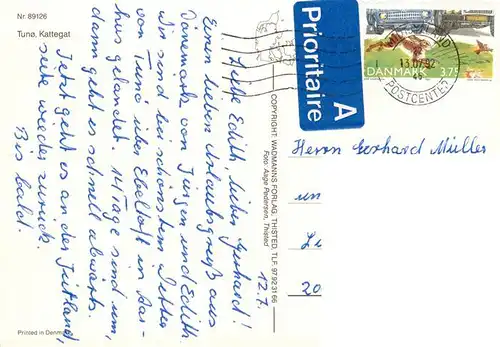 Nr 89126
Tunø. Kattegat
12.7.
Liebe Edith, lieber Gerhard!
Einen lieben Urlaubsgruß aus
Dänemark von Jürgen und Edith.
Wir sind bei schönstem Wetter
von Tunö über Ebeltoft in Aar-
hus gelandet. 14 Tage sind um,
dann geht es schnell abwärts.
Jetzt geht es an der Jütland,
seite wieder zurück.
Bis bald.
Printed in Denm
COPYRIGHT: WADMANNS FORLAG, THISTED, TLF. 97 92 31 66
Foto: Aage Pedersen, Thisted
Prioritaire
A
13.07.92
POSTCENTER
DANMARK 3.75
Herrn Gerhard Müller
un
Le
20